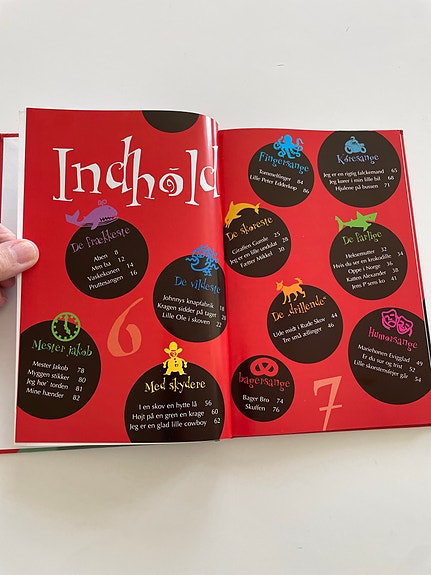 Indhold
De frækkeste
Aben 8
Men ba 12
Vaskekonen 14
Pruttesangen 16
De vildeste
Johnnys knapfabrik 18
Kragen sidder på taget 20
Lille Ole i skoven 22
Mester Jakob
Mester Jakob 78
Myggen stikker 80
Jeg hør' torden 81
Mine hænder 82
6
Med skydere
I en skov en hytte lå 56
Højt på en gren en krage 60
Jeg er en glad lille cowboy 62
Fingersange
Tommelfinger 84
Lille Peter Edderkop 86
Køresange
Jeg er en rigtig falckemand 65
Jeg kører i min lille bil 68
Hjulene på bussen 71
De skøreste
Giraffen Gunda 25
Jeg er en lille undulat 28
Fætter Mikkel 30
De farlige
Heksemutter 32
Hvis du ser en krokodille 34
Oppe i Norge 36
Katten Alexander 38
Jens P som ko 41
De „drillende"
Ude midt i Rude Skov 44
Tre små ællinger 46
Humorsange
Marehonen Evigglad 49
Er du sur og trist 52
Lille skorstensfejer går 54
Bagersange
Bager Bro 74
Skuffen 76
7